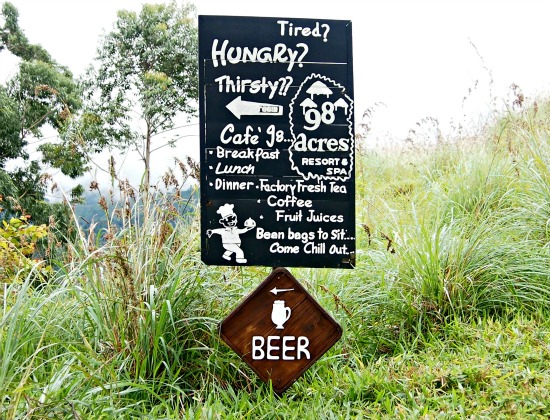 Tired?
HUNGRY?
Thirsty??
Café 98...
98
acres
RESORT &
SPA
• Breakfast
• Lunch
• Dinner • Factory Fresh Tea
• Coffee
• Fruit Juices
Bean bags to Sit...
Come Chill Out...
BEER